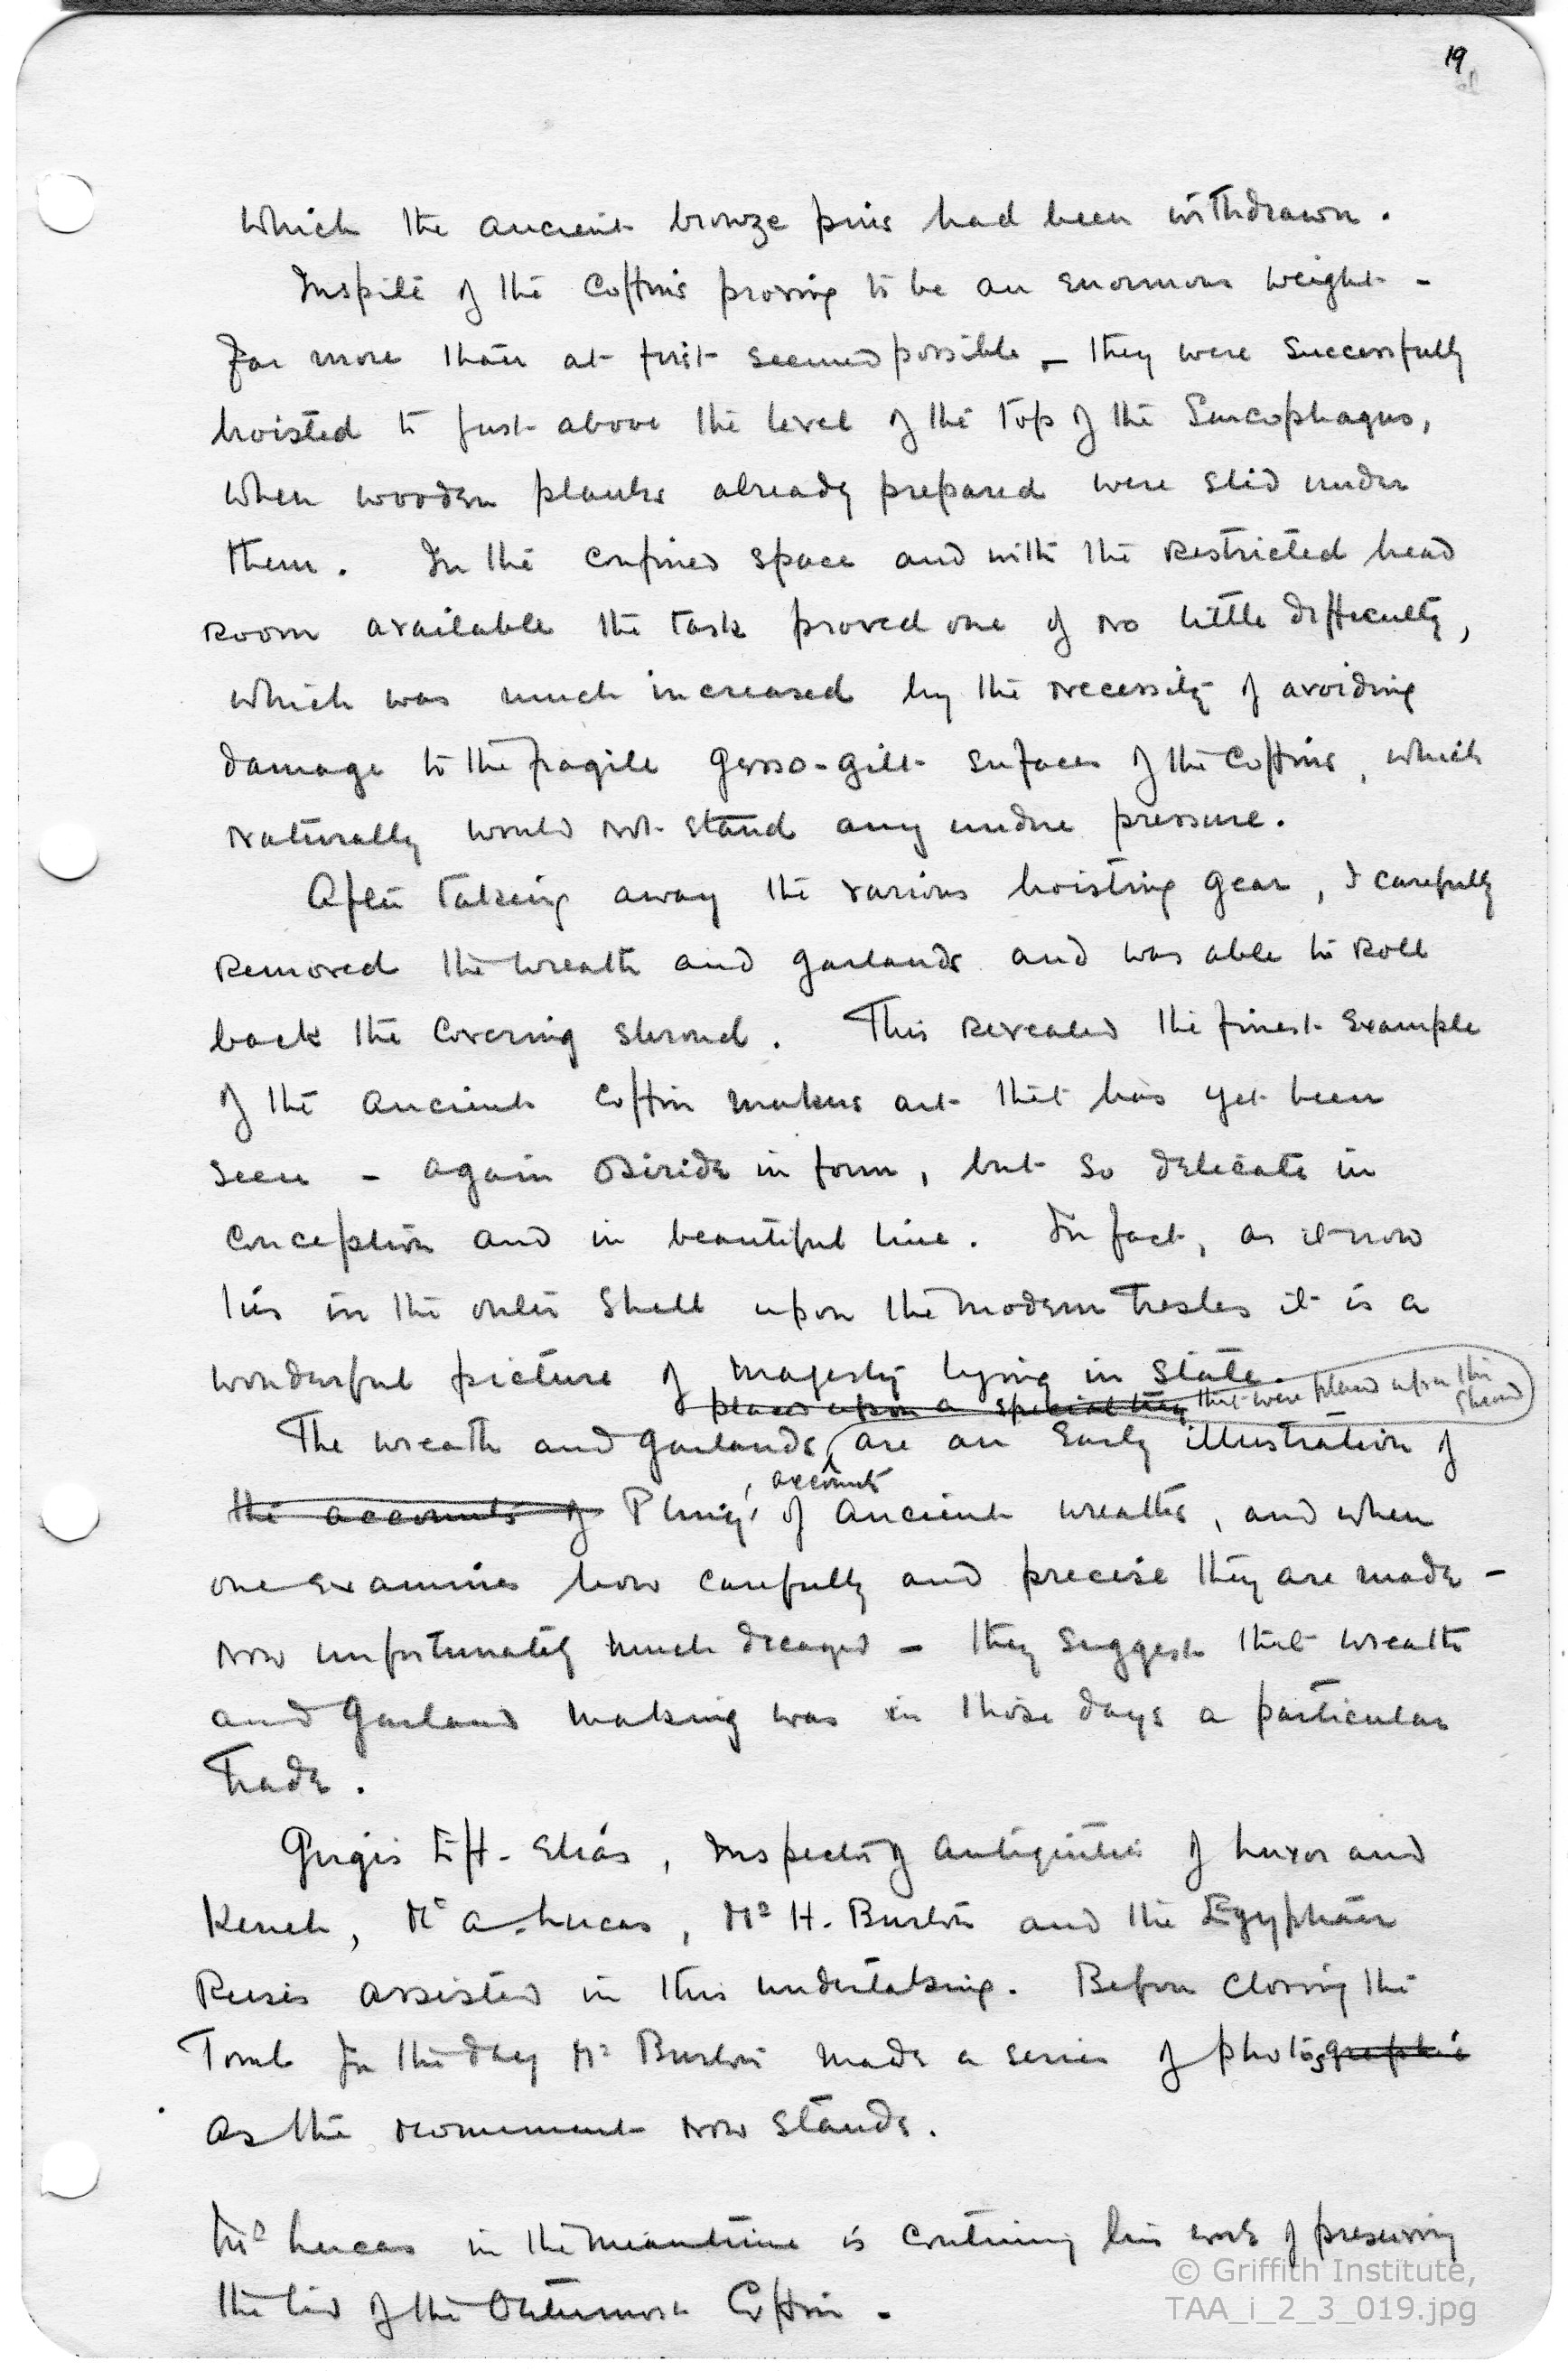 19
which the ancient bronze pins had been withdrawn.
Inspite of the coffins proving to be an enormous weight –
far more than at first seemed possible – they were successfully
hoisted to just above the level of the top of the Sarcophagus,
when wooden planks already prepared were slid under
them. In the confined space and with the restricted head
room available the task proved one of no little difficulty,
which was much increased by the necessity of avoiding
damage to the fragile gesso-gilt surfaces of the coffins, which
naturally would not stand any undue pressure.
After taking away the various hoisting gear, I carefully
removed the wreath and garlands and was able to roll
back the covering shroud. This revealed the finest example
of the ancient coffin makers art that has yet been
seen – again Osiride in form, but so delicate in
conception and in beautiful line. In fact, as it now
lies in the outer shell upon the modern trestles it is a
wonderful picture of Majesty lying in State.
placed upon a special tray that were placed upon the
shroud
The wreath and garlands are an early illustration of
accounts
the accounts of Pliny's of ancient wreaths, and when
one examines how carefully and precise they are made –
now unfortunately much decayed – they suggest that wreath
and garland making was in those days a particular
trade.
Girgis Eff. Elias, Inspector of Antiquities of Luxor and
Keneh, Mr A. Lucas, Mr H. Burton and the Egyptian
Reises assisted in this undertaking. Before closing the
Tomb for the day Mr Burton made a series of photosgraphic
as the monument now stands.
Mr Lucas in the meantime is continuing his work of preserving
the lid of the Outermost Coffin.
© Griffith Institute,
TAA_i_2_3_019.jpg